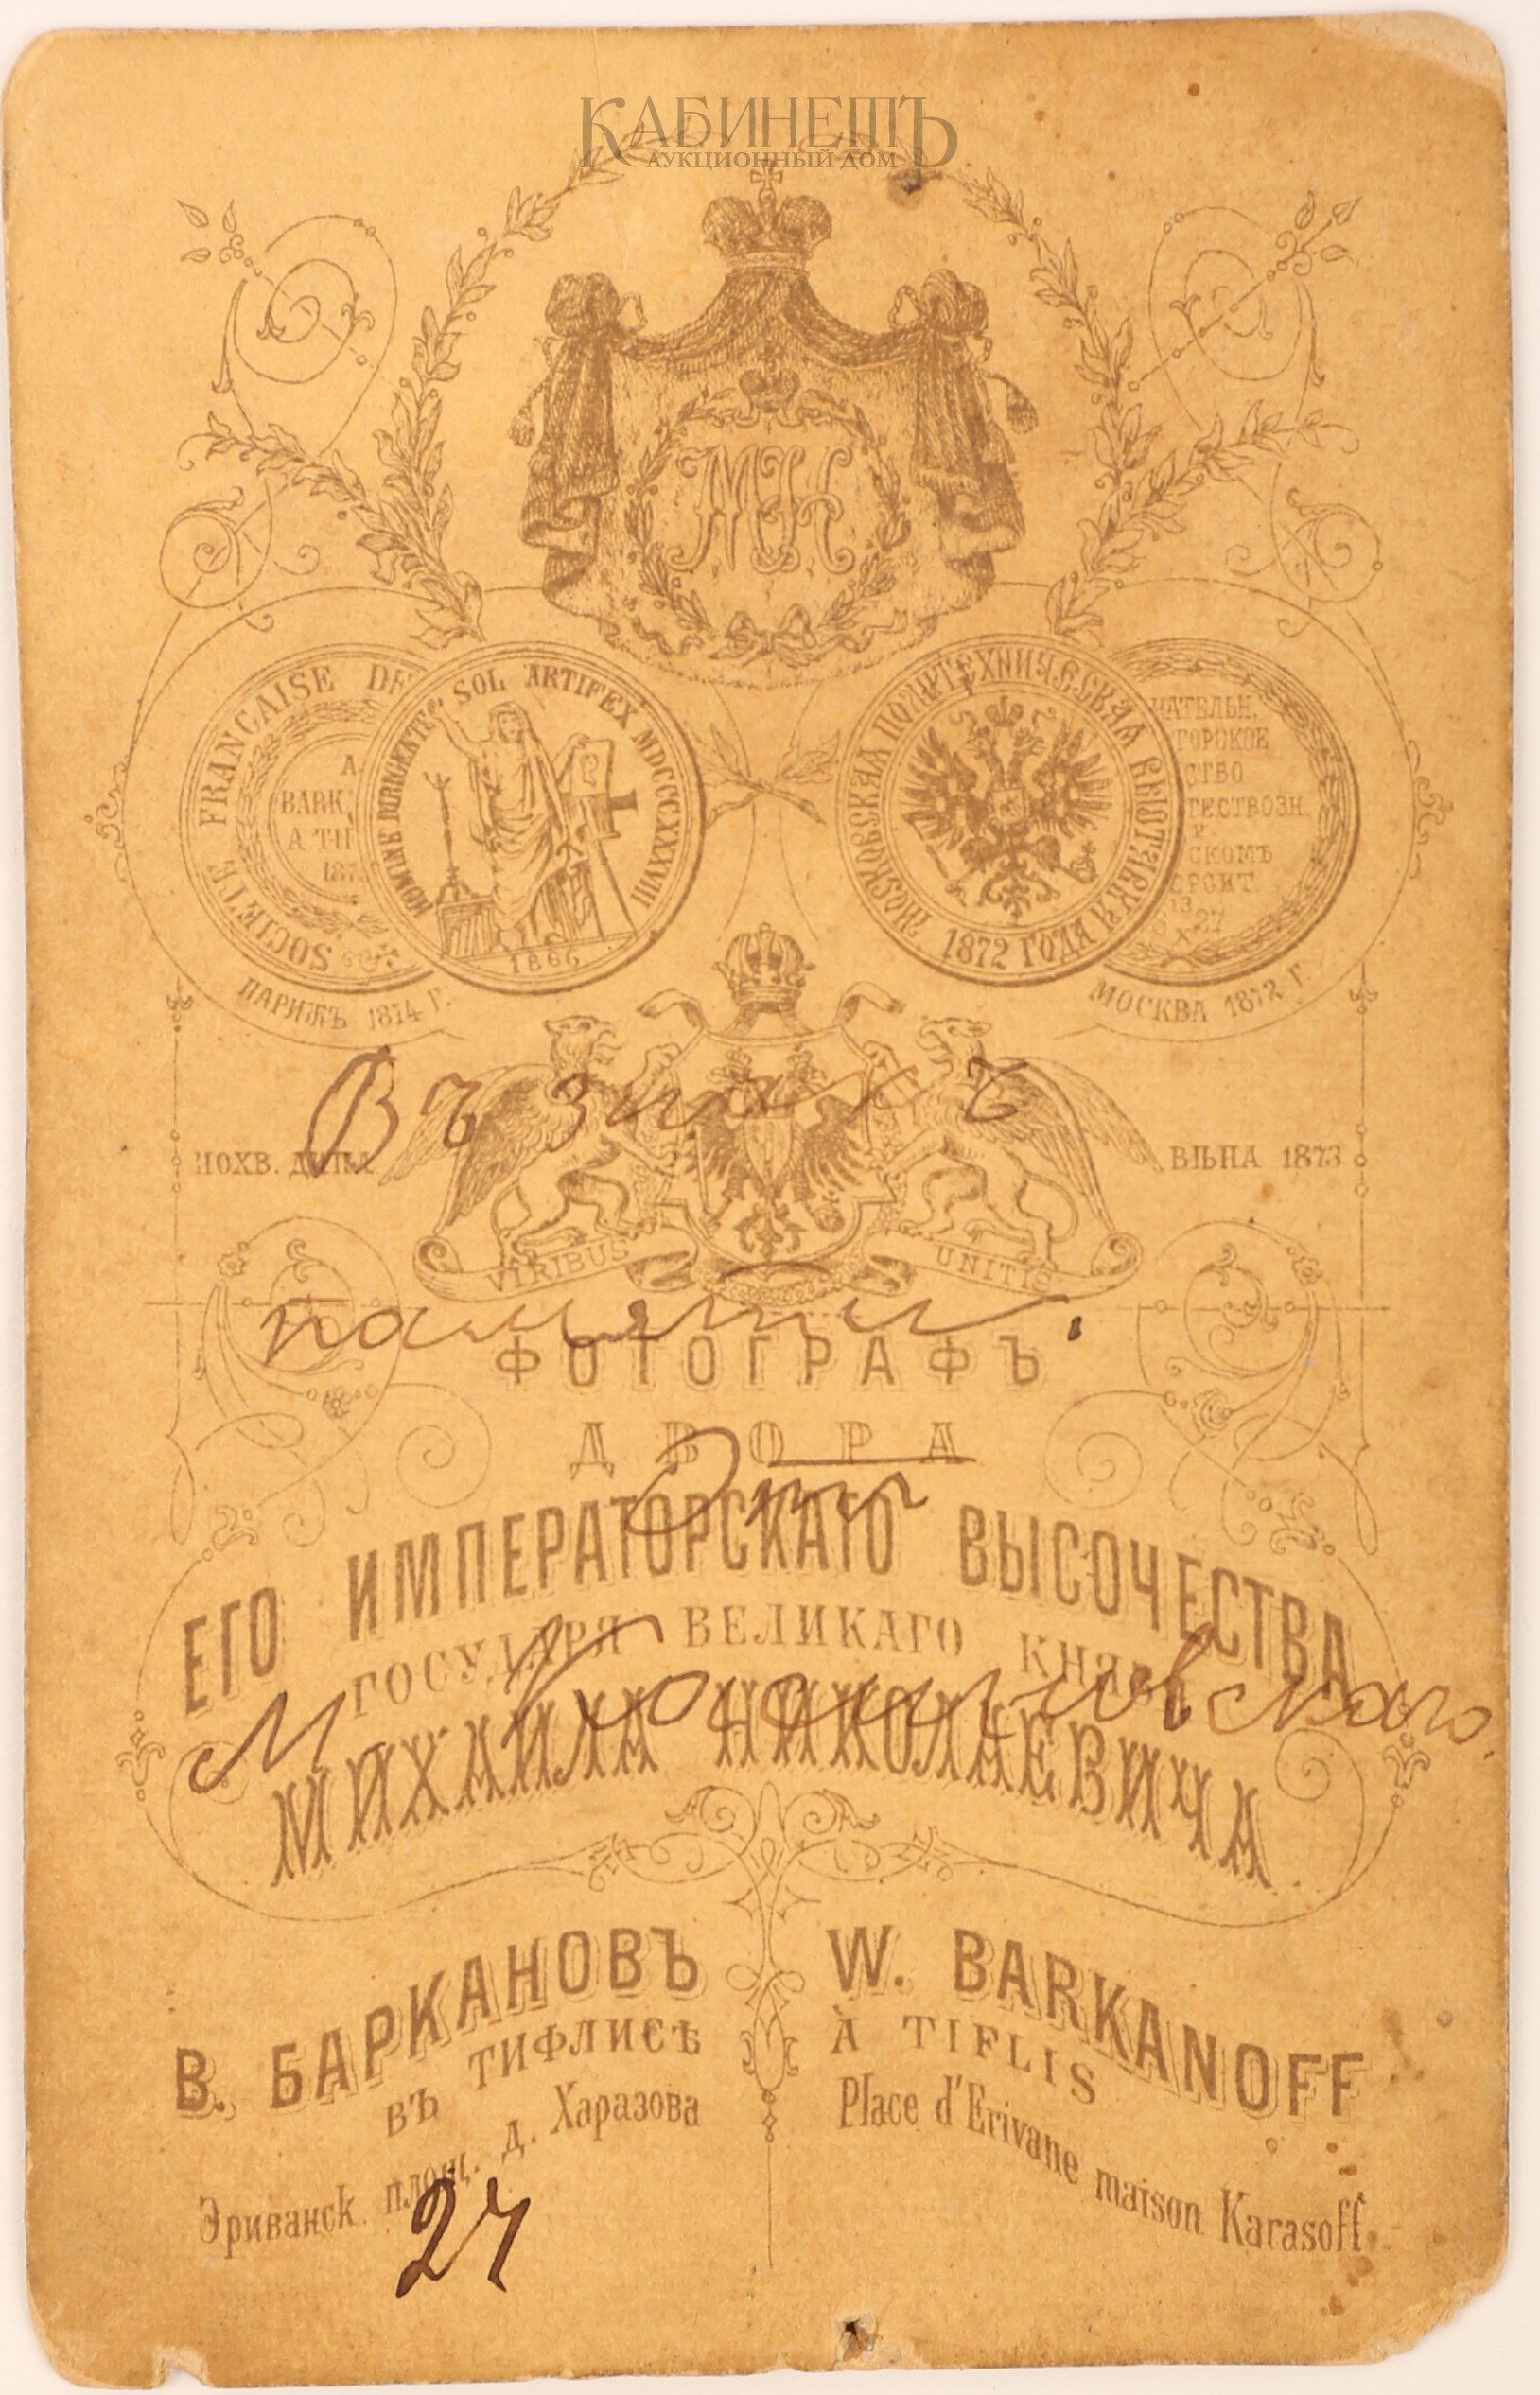 КАБИНЕТЪ
АУКЦИОННЫЙ ДОМ
МН
SOCIETE FRANCAISE DE
A.
BARK
A TIF
187
NOMINE DURIGENTE SOL ARTIFEX MDCCCXXXVIII
1866
МОСКОВСКАЯ ПОЛИТЕХНИЧЕСКАЯ ВЫСТАВКА
1872 ГОДА
ЧАТЕЛЬН.
ТОРСКОЕ
СТВО
ТЕСТВОЗН.
СКОМЪ
ПАРИЖЪ 1874 Г.
МОСКВА 1872 Г.
Въ знакъ
ПОХВ. ВѢНА 1873
VIRIBUS UNITIS
памяти.
ФОТОГРАФЪ
ДВОРА
Отъ
ЕГО ИМПЕРАТОРСКАГО ВЫСОЧЕСТВА
ГОСУДАРЯ ВЕЛИКАГО КНЯЗЯ
М.
МИХАИЛА НИКОЛАЕВИЧА
В. БАРКАНОВЪ
ВЪ ТИФЛИСѢ
Эриванск. площ. д. Харазова
W. BARKANOFF
À TIFLIS
Place d'Erivane maison Karasoff
27